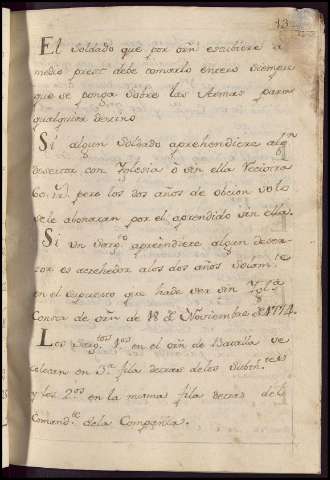 13
El Soldado que por orñ escubiere a
medio prest debe tomarlo entero siempre
que se ponga sobre las Armas para
qualquier destino
Si algun Soldado aprehendiere algⁿ
desertor con Yglesia o sin ella
60 rˢ. pero los dos años de obcion solo
se le abonaran por el aprendido sin ella.
Si un Sargᵗᵒ apreindiere algun deser-
tor es acrehedor alos dos años solamᵗᵉ
en el supuesto que hade ser sin Yglᵃ
Consta de orñ de 18 de Noviembre de 1774.
Los Sargᵗᵒˢ 1ᵒˢ en el orñ de Batalla se
colocan en 3ª fila detras delos Subtenᵗᵉˢ
y los 2ᵒˢ en la misma fila detras del
Comandᵗᵉ dela Compañia.